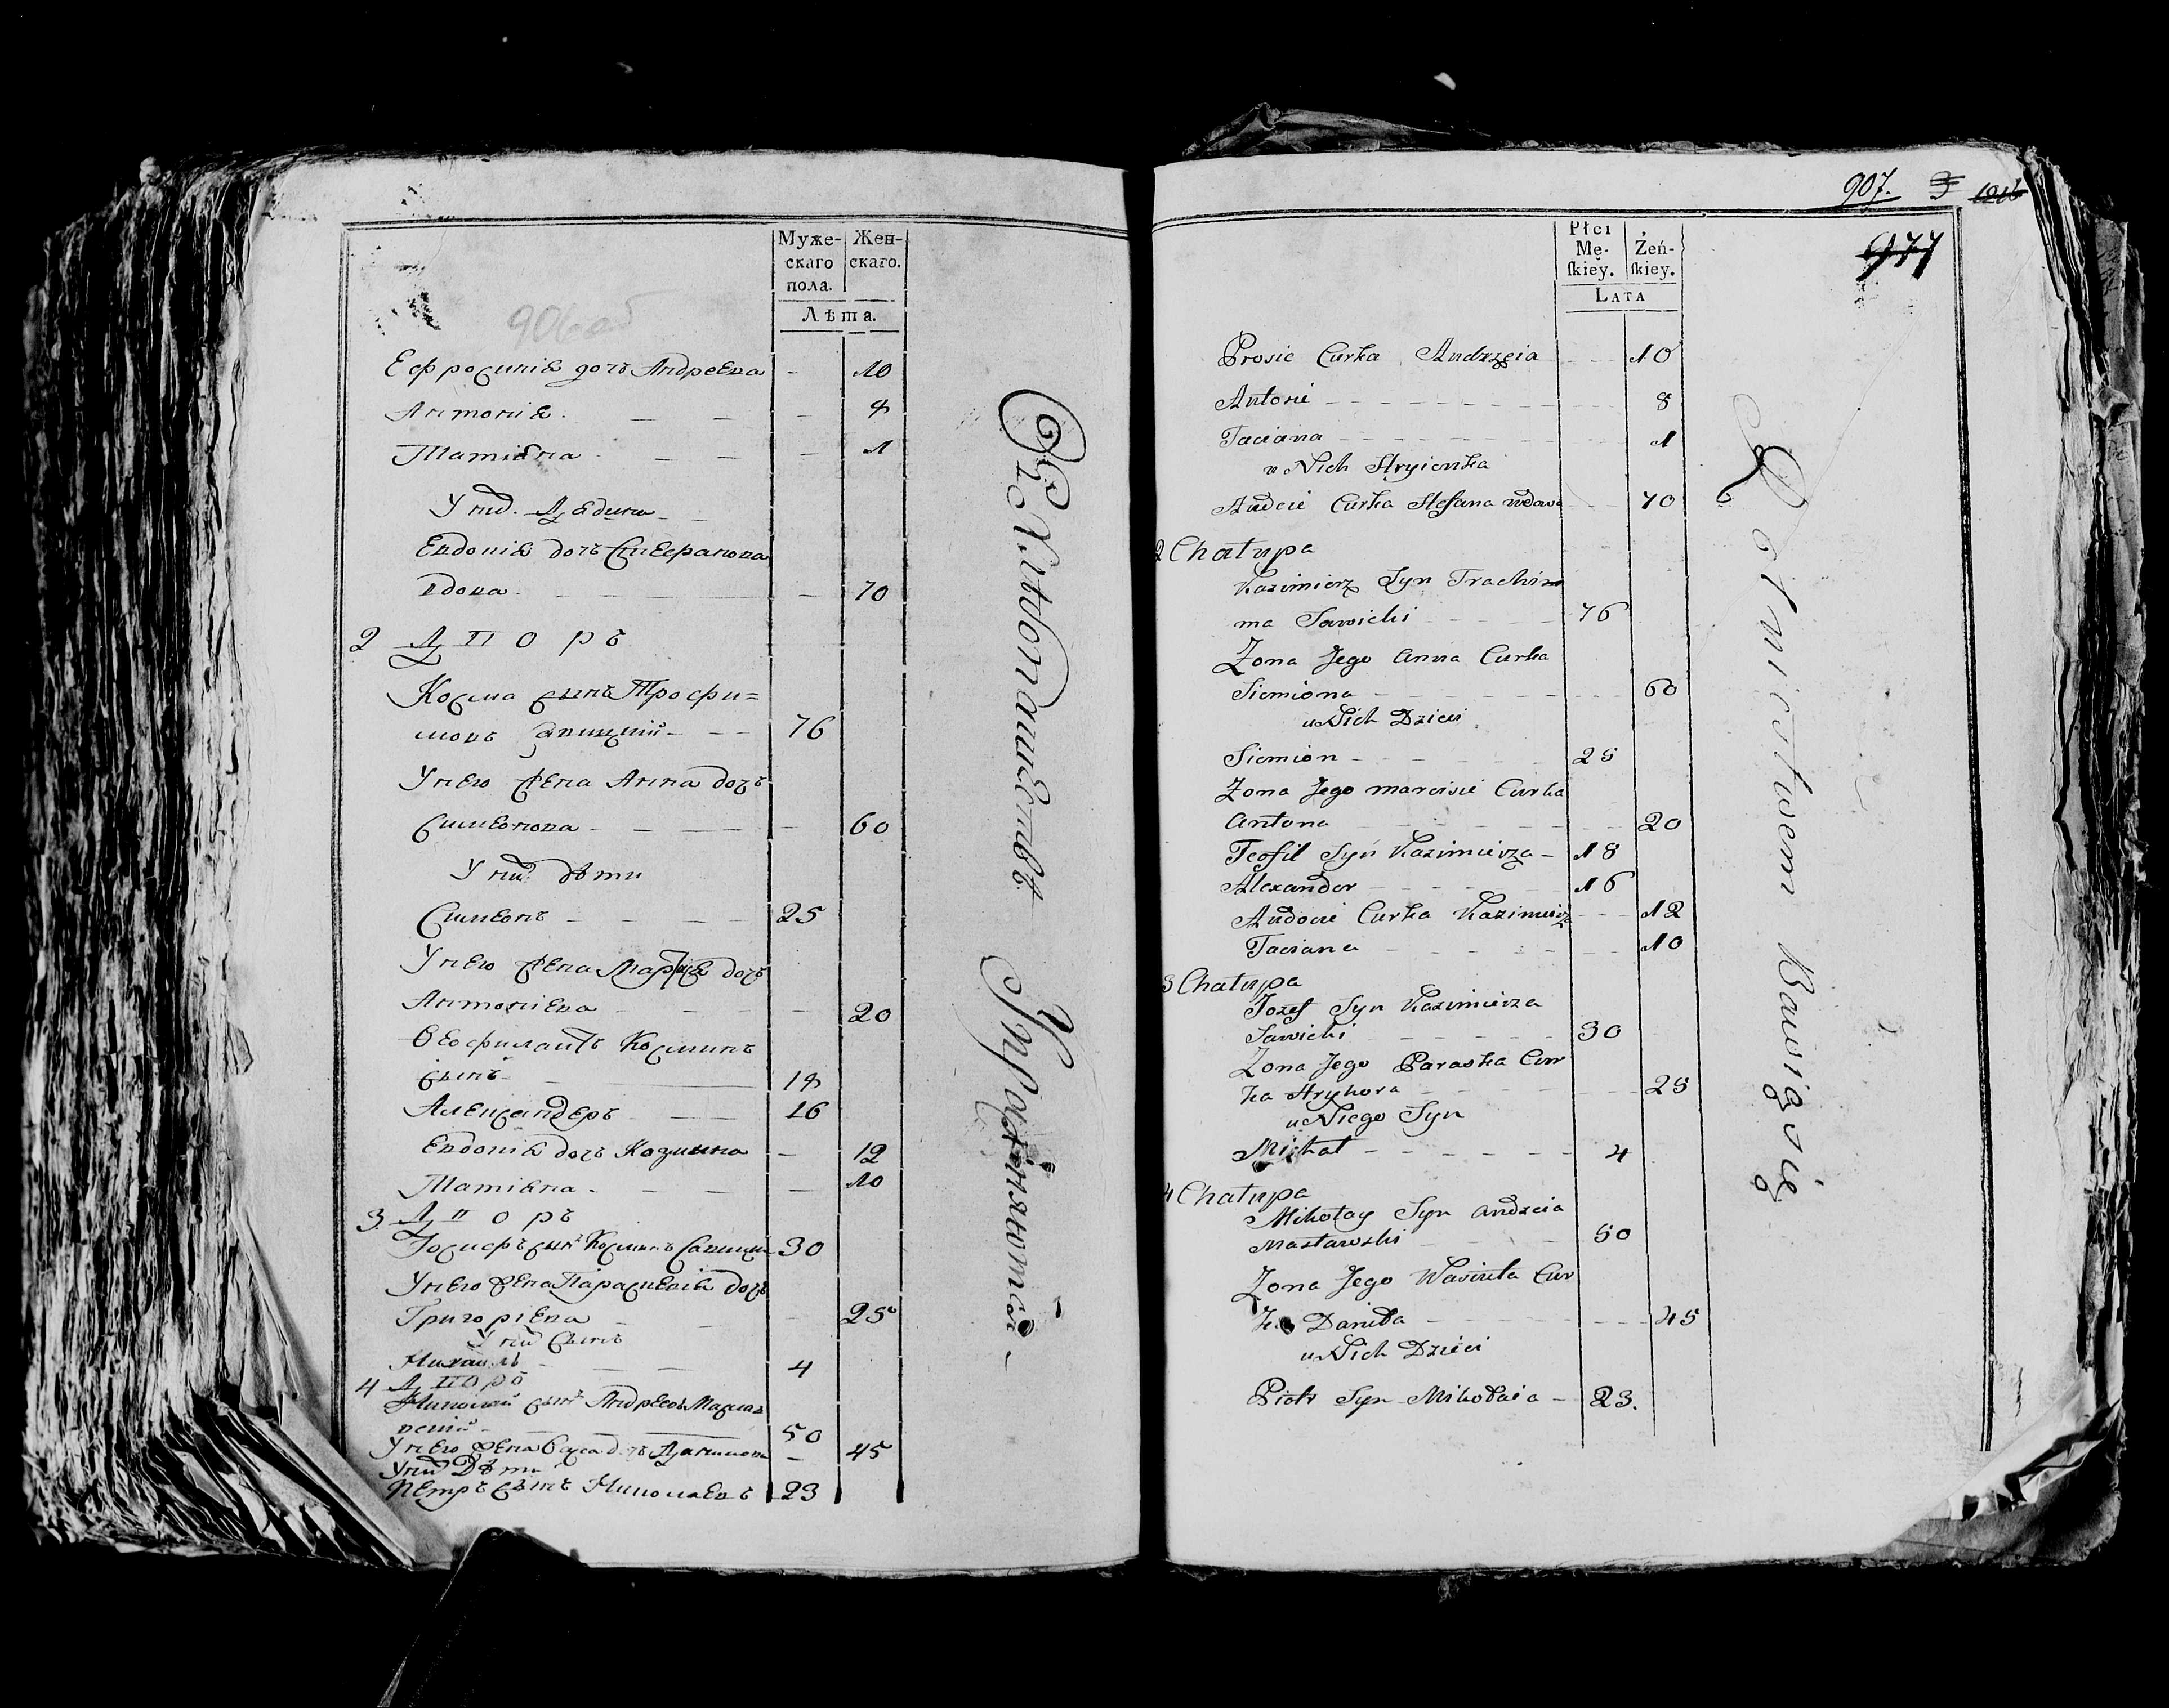 Муже-
скаго
пола.
Жен-
скаго.
Лѣта.
906 об
Ефросинія дочь Андреева - 10
Антонія - 8
Татіяна - 1
У них Дядина
Евдокія дочь Стефанова
вдова - 70
2 Дворъ
Косма сынъ Трофи=
мовъ Савицкій 76
У него жена Анна дочь
Симеонова - 60
У них дѣти
Симеонъ 25
У него жена дочь
Антоніева - 20
Феофилактъ Косминъ
сынъ 18
Александеръ 16
Евдокія дочь Козмина - 12
Татіяна - 10
3 Дворъ
Іосифъ сынъ Косминъ Савицкі 30
У него жена Параскевія дочь
Григоріева - 25
У них сынъ
Михаилъ 4
4 Дворъ
Николай сынъ Андреевъ
50
У него жена Данилова - 45
У них Дѣти
Петръ сынъ Николаевъ 23
Хлебопашествѣ Упражняются
907.
977
Płci
Mę-
skiey.
Żeń-
skiey.
Lata
Prosie Curka Andrzeia 10
Antoni 8
Taciana 1
u Nich Stryienka
Audocie Curka Stefana wdowa 70
2 Chałupa
Kazimierz Syn Trachim
ma Sawicki 76
Zona Jego Anna Curka
Siemiona 60
u Nich Dzieci
Siemion 25
Zona Jego marcisie Curka
Antona 20
Teofil Syn Kazimierza 18
Alexander 16
Audocie Curka Kazimierz 12
Taciana 10
3 Chałupa
Jozef Syn Kazimierza
Sawicki 30
Zona Jego Paraska Cur
ka Hryhora 25
u Niego Syn
Michał 4
4 Chałupa
Mikołay Syn andrzeia
Masławski 50
Zona Jego Cur
ka Daniła 45
u Nich Dzieci
Piotr Syn Mikołaia 23.
Rolnictwem Bawią się